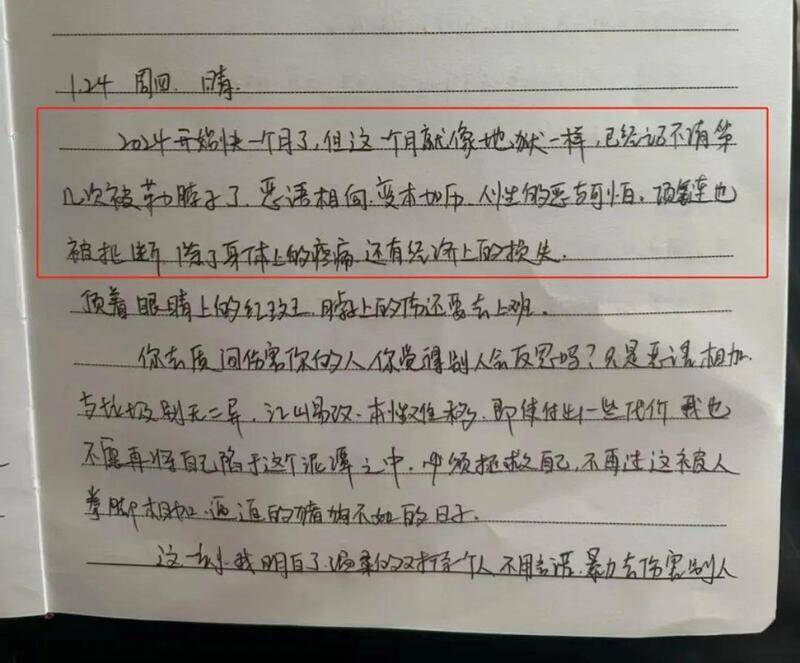 1.24 周四. 晴.
2024开始快一个月了,但这一个月就像地狱一样,已经记不清第
几次被勒脖子了.恶语相向.变本加厉.人性的恶与可怕。项链也
被扯断 除了身体上的疼痛,还有经济上的损失.
顶着眼睛上的红斑,脖子上的伤还要去上班.
你去质问伤害你的人你觉得别人会反思吗?只是恶语相加.
与垃圾别无二异,江山易改.本性难移.即使付出一些代价 我也
不愿再将自己陷于这个泥潭之中.必须拯救自己,不再过这被人
拳脚相加.逼迫的猪狗不如的日子.
这一刻.我明白了温柔的对待一个人 不用言语.暴力去伤害别人